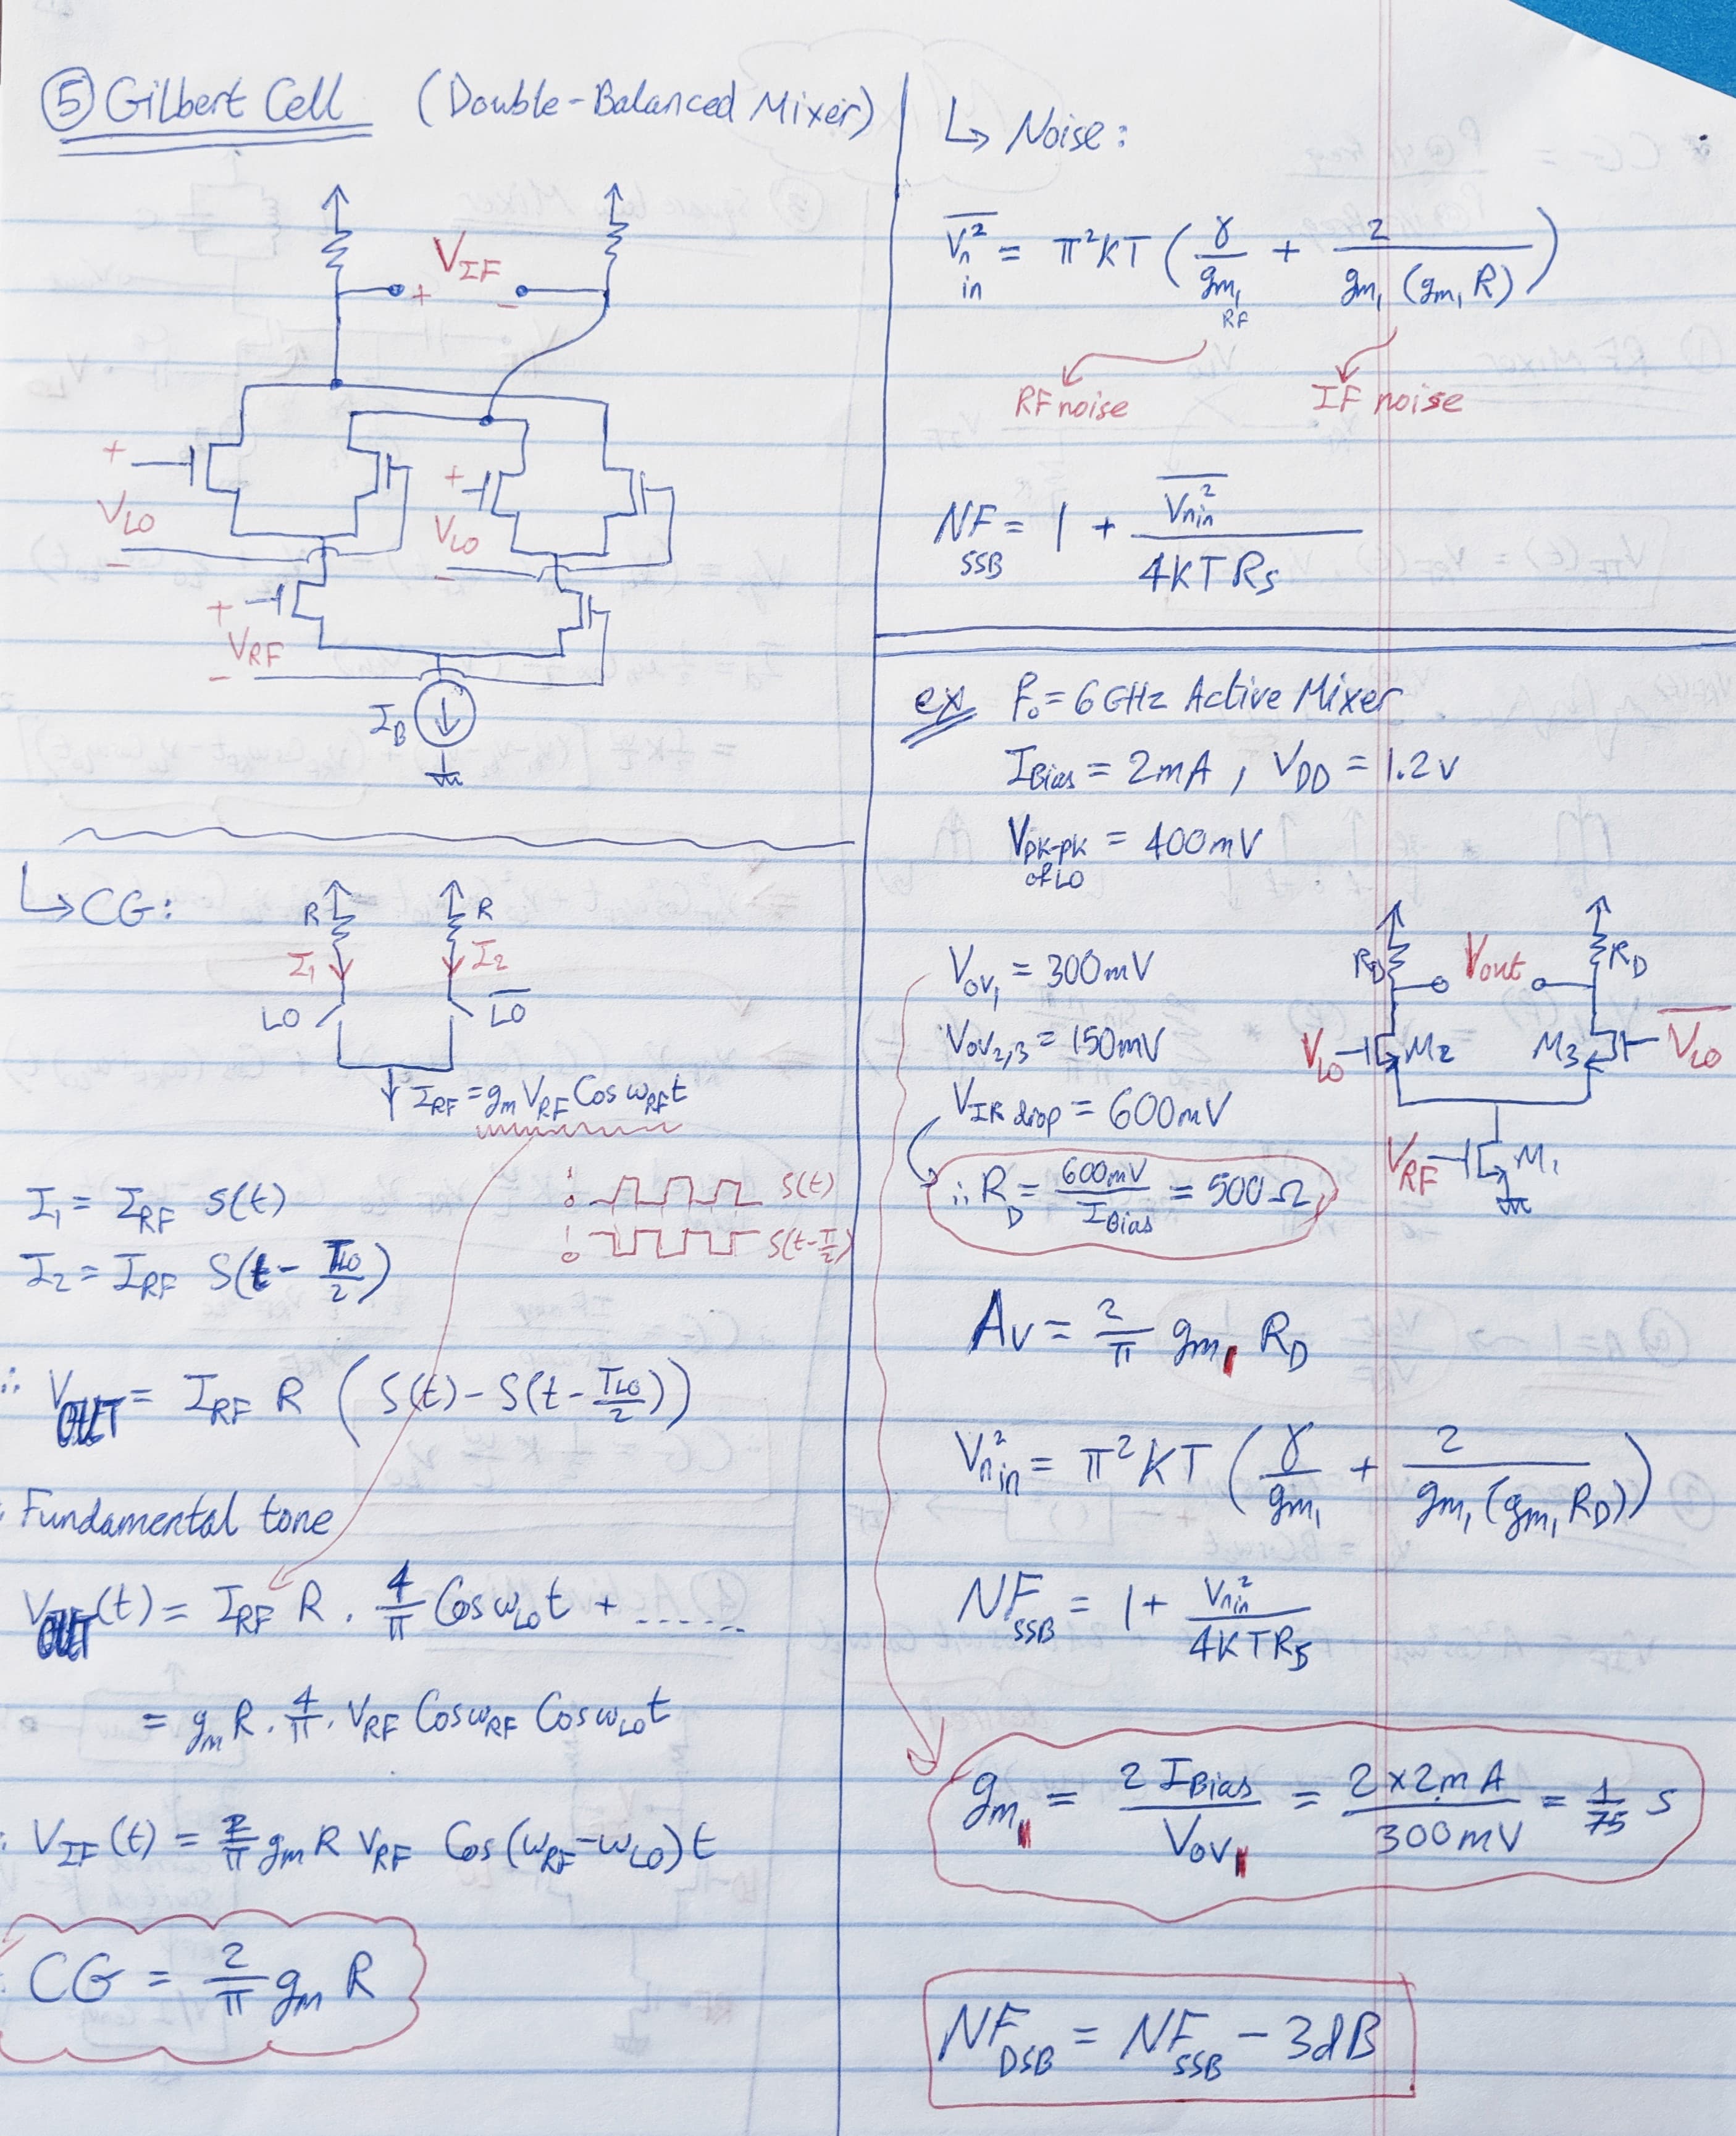 ⑤ Gilbert Cell (Double-Balanced Mixer)
V_IF
+ −
+
V_LO
−
+
V_LO
−
+
V_RF
−
I_B
↳ CG:
R R
I₁ I₂
LO \overline{LO}
I_RF = g_m V_RF Cos ω_RF t
I₁ = I_RF S(t)
1
0
S(t)
I₂ = I_RF S(t − T_LO/2)
1
0
S(t − T/2)
∴ V_OUT = I_RF R (S(t) − S(t − T_LO/2))
: Fundamental tone
V_OUT(t) = I_RF R . 4/π Cos ω_LO t + ......
= g_m R . 4/π . V_RF Cos ω_RF Cos ω_LO t
: V_IF(t) = 2/π g_m R V_RF Cos(ω_RF − ω_LO) t
: CG = 2/π g_m R
↳ Noise:
\overline{V_n²}_in = π²KT (γ/g_m₁ + 2/(g_m₁ (g_m₁ R)))
RF
RF noise IF noise
NF_SSB = 1 + \overline{V_n_in²}/(4KTRs)
ex f₀ = 6 GHz Active Mixer
I_Bias = 2mA , V_DD = 1.2 v
V_pk-pk of LO = 400mV
V_ov₁ = 300mV
V_ov₂,₃ = 150mV
V_IR drop = 600mV
∴ R_D = 600mV/I_Bias = 500Ω
R_D Vout R_D
V_LO M2 M3 \overline{V_LO}
V_RF M₁
Av = 2/π g_m₁ R_D
V_n_in² = π²KT (γ/g_m₁ + 2/(g_m₁ (g_m₁ R_D)))
NF_SSB = 1 + V_n_in²/(4KTRs)
g_m₁ = 2 I_Bias/V_ov₁ = 2×2mA/300mV = 1/75 s
NF_DSB = NF_SSB − 3dB